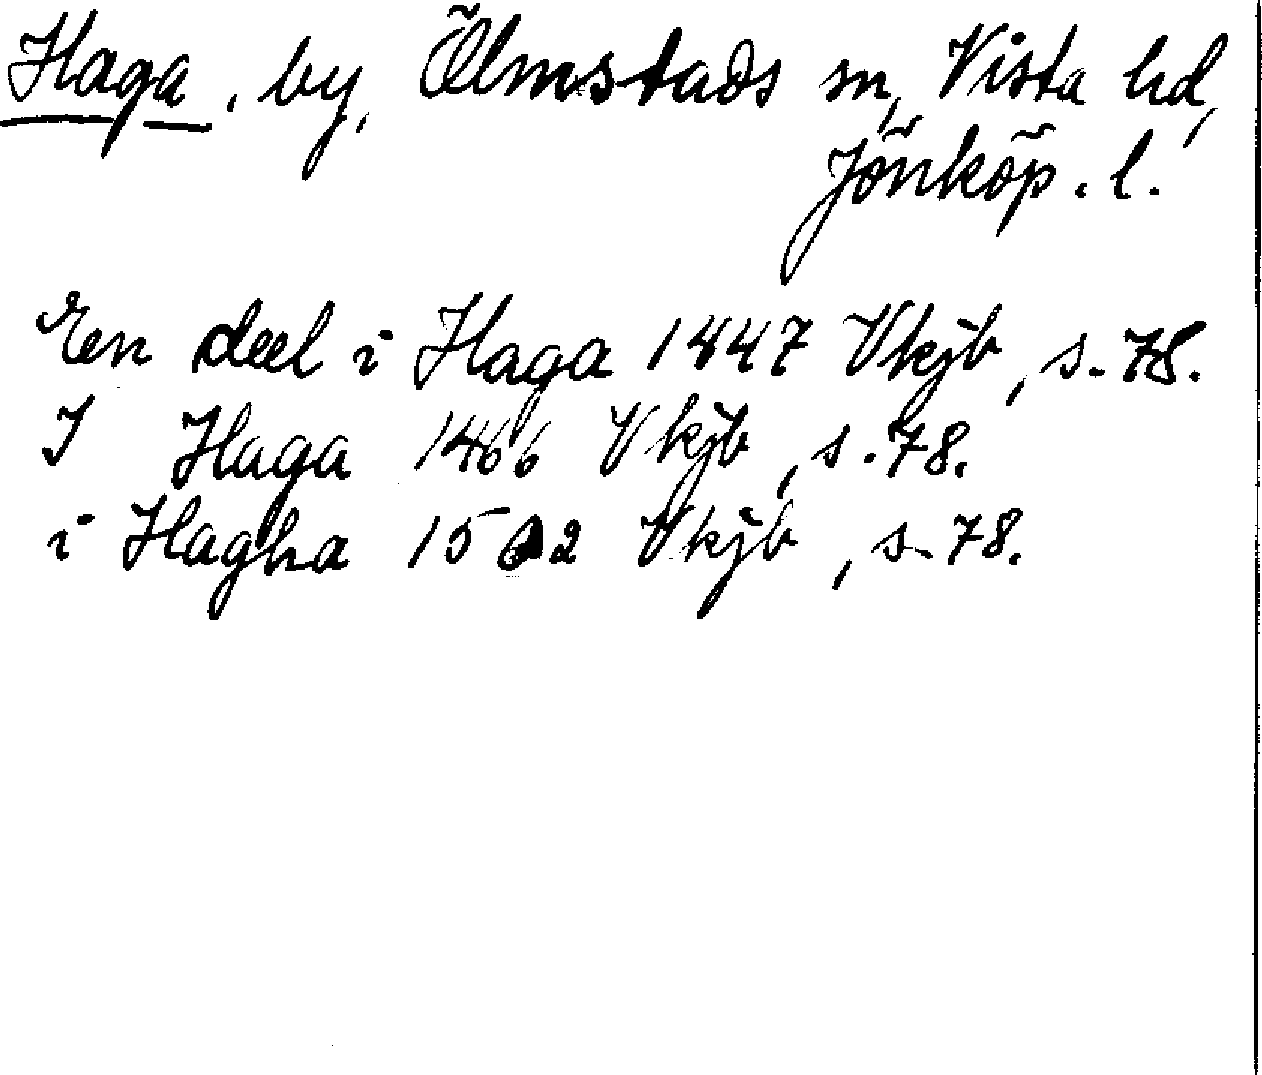 Haga, by, Ölmstads sn, Vista hd,
Jönköp. l.
En deel i Haga 1447 Vkjb, s. 78.
I Haga 1466 Vkjb, s. 78.
i Hagha 1502 Vkjb, s. 78.